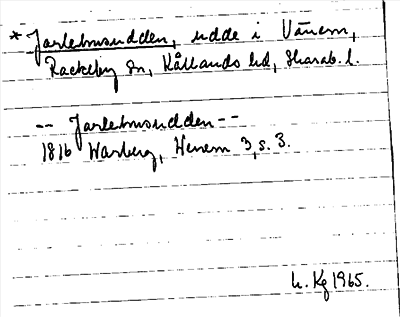 * Jarlehusudden, udde i Vänern,
Rackeby sn, Kållands hd, Skarab. l.
-- Jarlehusudden --
1816 Warberg, Wenern 3, s. 3.
L. Kg 1965.